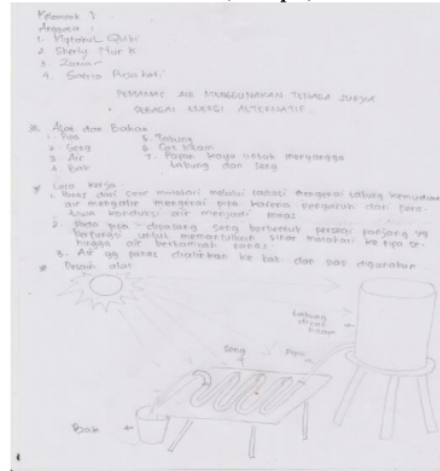 Kelompok
Anggota :
1. Miftakul Qulbi
2. Sherly Nur K
3. Zaniar
4. Satria
PEMANAS AIR MENGGUNAKAN TENAGA SURYA
SEBAGAI ENERGI ALTERNATIF
* Alat dan Bahan
1. Pipa 5. Tabung
2. Seng 6. Cat hitam
3. Air 7. Papan kayu untuk menyangga
4. Bak tabung dan seng
* Cara kerja
1. Panas dari sinar matahari melalui radiasi mengenai tabung kemudian
air mengalir mengenai pipa karena pengaruh dari peris-
tiwa konduksi air menjadi panas
2. Pada pipa dipasang seng berbentuk persegi panjang yg
berfungsi untuk memantulkan sinar matahari ke pipa se-
hingga air bertambah panas
3. Air yg panas dialirkan ke bak dan siap digunakan
* Desain alat
tabung
dicat
hitam
Seng
Pipa
Bak